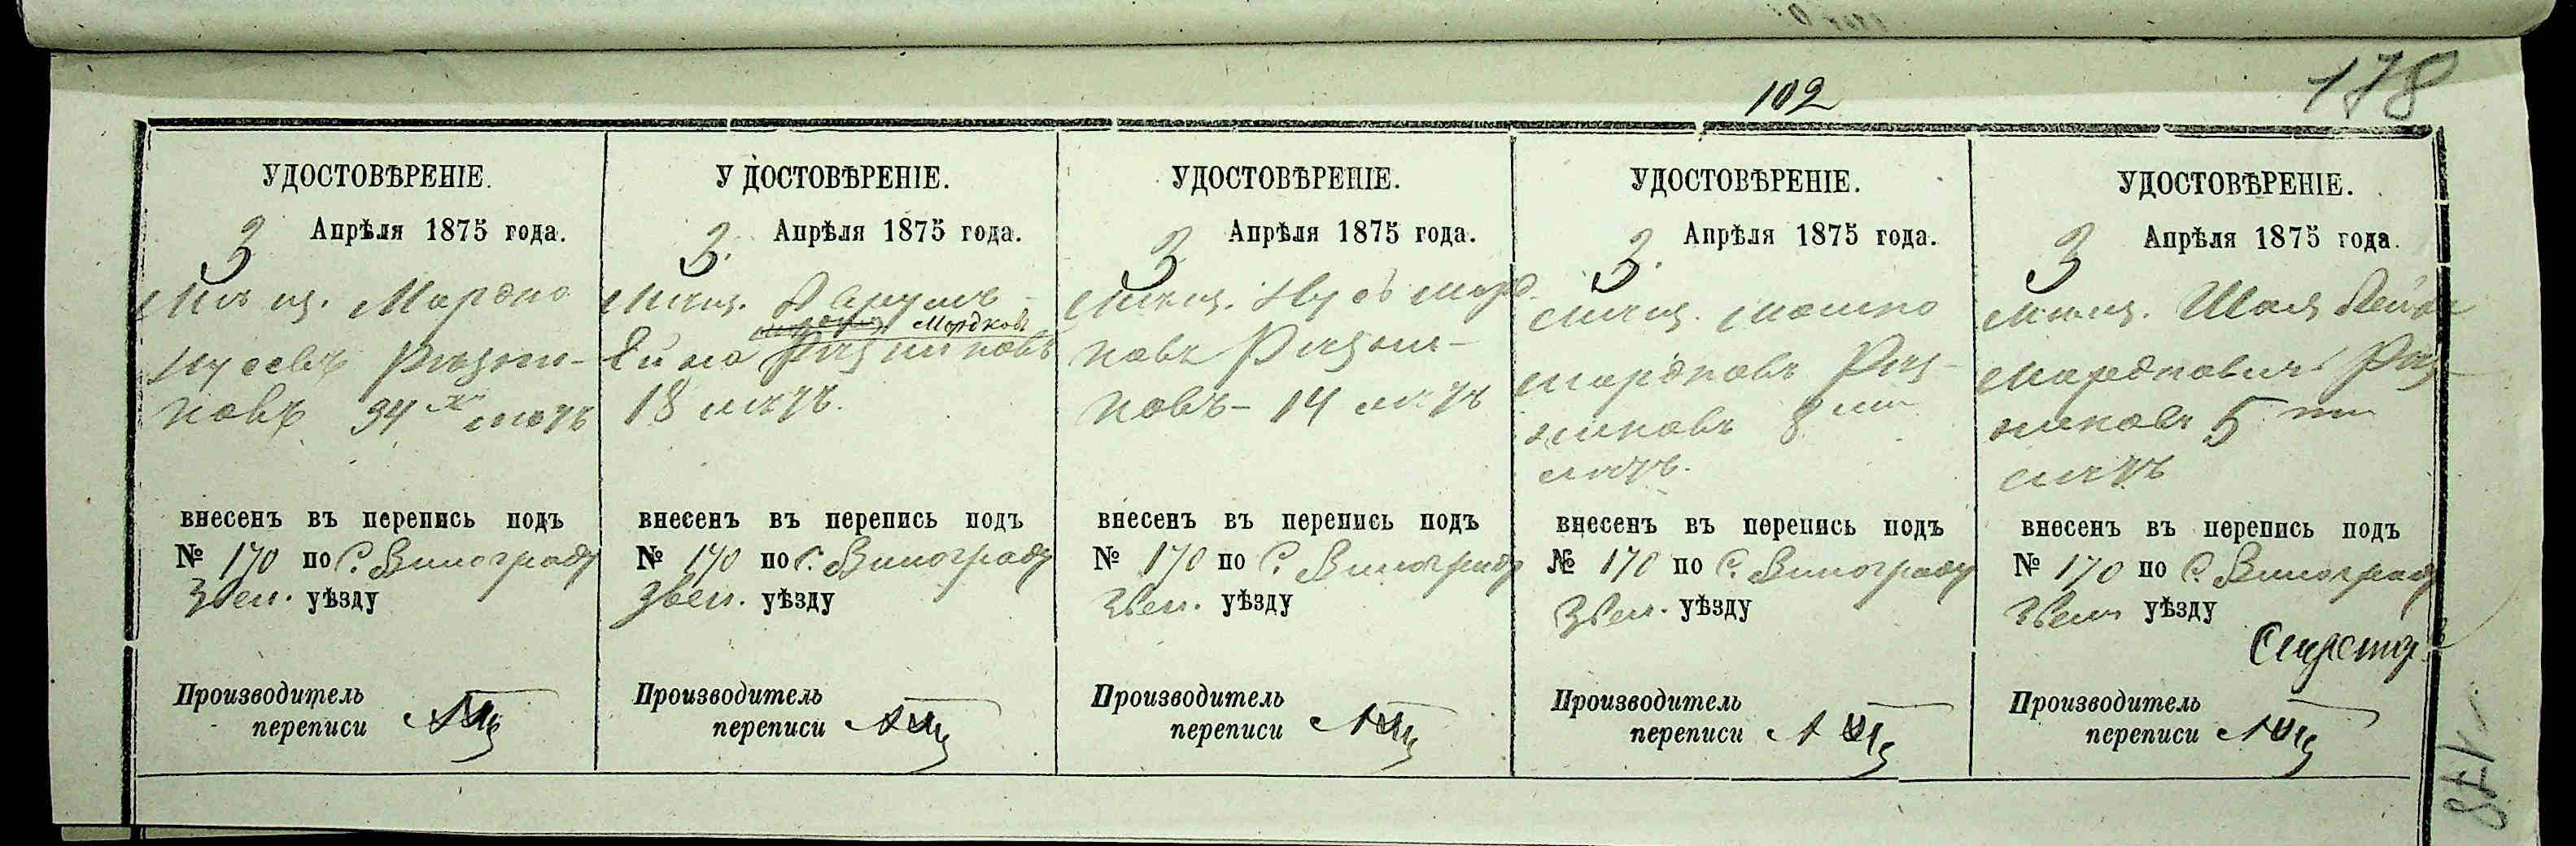 102
178
УДОСТОВѢРЕНІЕ.
3 Апрѣля 1875 года.
Мѣщ. Мордко
Нусевъ Разни-
ковъ 34 лѣтъ
внесенъ въ перепись подъ
№ 170 по С. Винограду
Звен. уѣзду
Производитель
переписи
УДОСТОВѢРЕНІЕ.
3. Апрѣля 1875 года.
Мѣщ. Аврумъ
Мордковъ
Разниковъ
18 лѣтъ.
внесенъ въ перепись подъ
№ 170 по С. Винограду
Звен. уѣзду
Производитель
переписи
УДОСТОВѢРЕНІЕ.
3 Апрѣля 1875 года.
Мѣщ. Нусь Морд-
ковъ Разни-
ковъ - 14 лѣтъ
внесенъ въ перепись подъ
№ 170 по С. Винограду
Звен. уѣзду
Производитель
переписи
УДОСТОВѢРЕНІЕ.
3. Апрѣля 1875 года.
Мѣщ. Мошко
Мордковъ Раз-
никовъ 8 ми
лѣтъ.
внесенъ въ перепись подъ
№ 170 по С. Винограду
Звен. уѣзду
Производитель
переписи
УДОСТОВѢРЕНІЕ.
3 Апрѣля 1875 года.
Мѣщ. Шая Лейба
Мордковичъ Раз-
никовъ 5 ти
лѣтъ
внесенъ въ перепись подъ
№ 170 по С. Винограду
Звен. уѣзду
Производитель
переписи
178